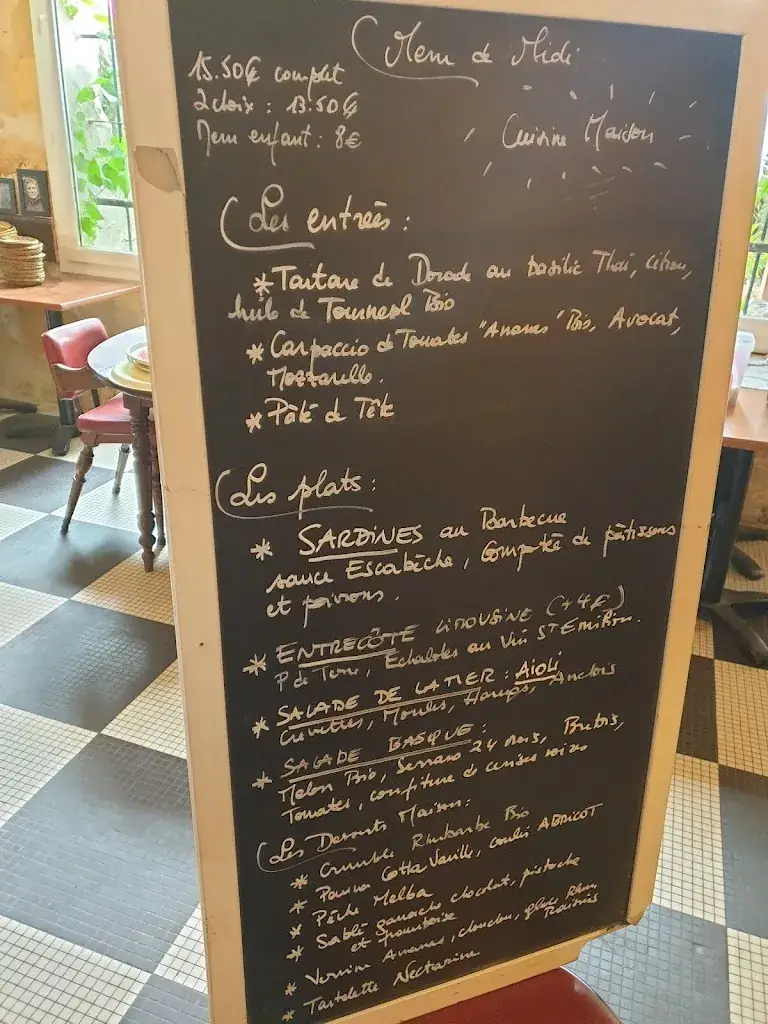 Menu de Midi
15.50€ complet
2 choix : 13.50€
Menu enfant : 8€
Cuisine Maison
Les entreés :
* Tartare de Dorade au basilic Thaï, citron,
huile de Tournesol Bio
* Carpaccio de Tomates "Ananas" Bio, Avocat,
Mozzarella.
* Pâté de Tête
Les plats :
* SARDINES au Barbecue
sauce Escabèche, Compotée de pâtissons
et poivrons.
* ENTRECÔTE LIMOUSINE (+4€)
P de Terre, Echalotes au Vin St Emilion.
* SALADE DE LA MER : AIOLI
Crevettes, Moules, Harengs, Anchois
* SALADE BASQUE :
Melon Bio, Serrano 24 mois, Brebis,
Tomates, confiture de cerises noires
Les Desserts Maison :
* Crumble Rhubarbe Bio
* Panna Cotta Vanille, coulis ABRICOT
* Pêche Melba
* Sablé ganache chocolat, pistache
et framboise
* Verrine Ananas, chouchou, glace Rhum
Raisins
* Tartelette Nectarine